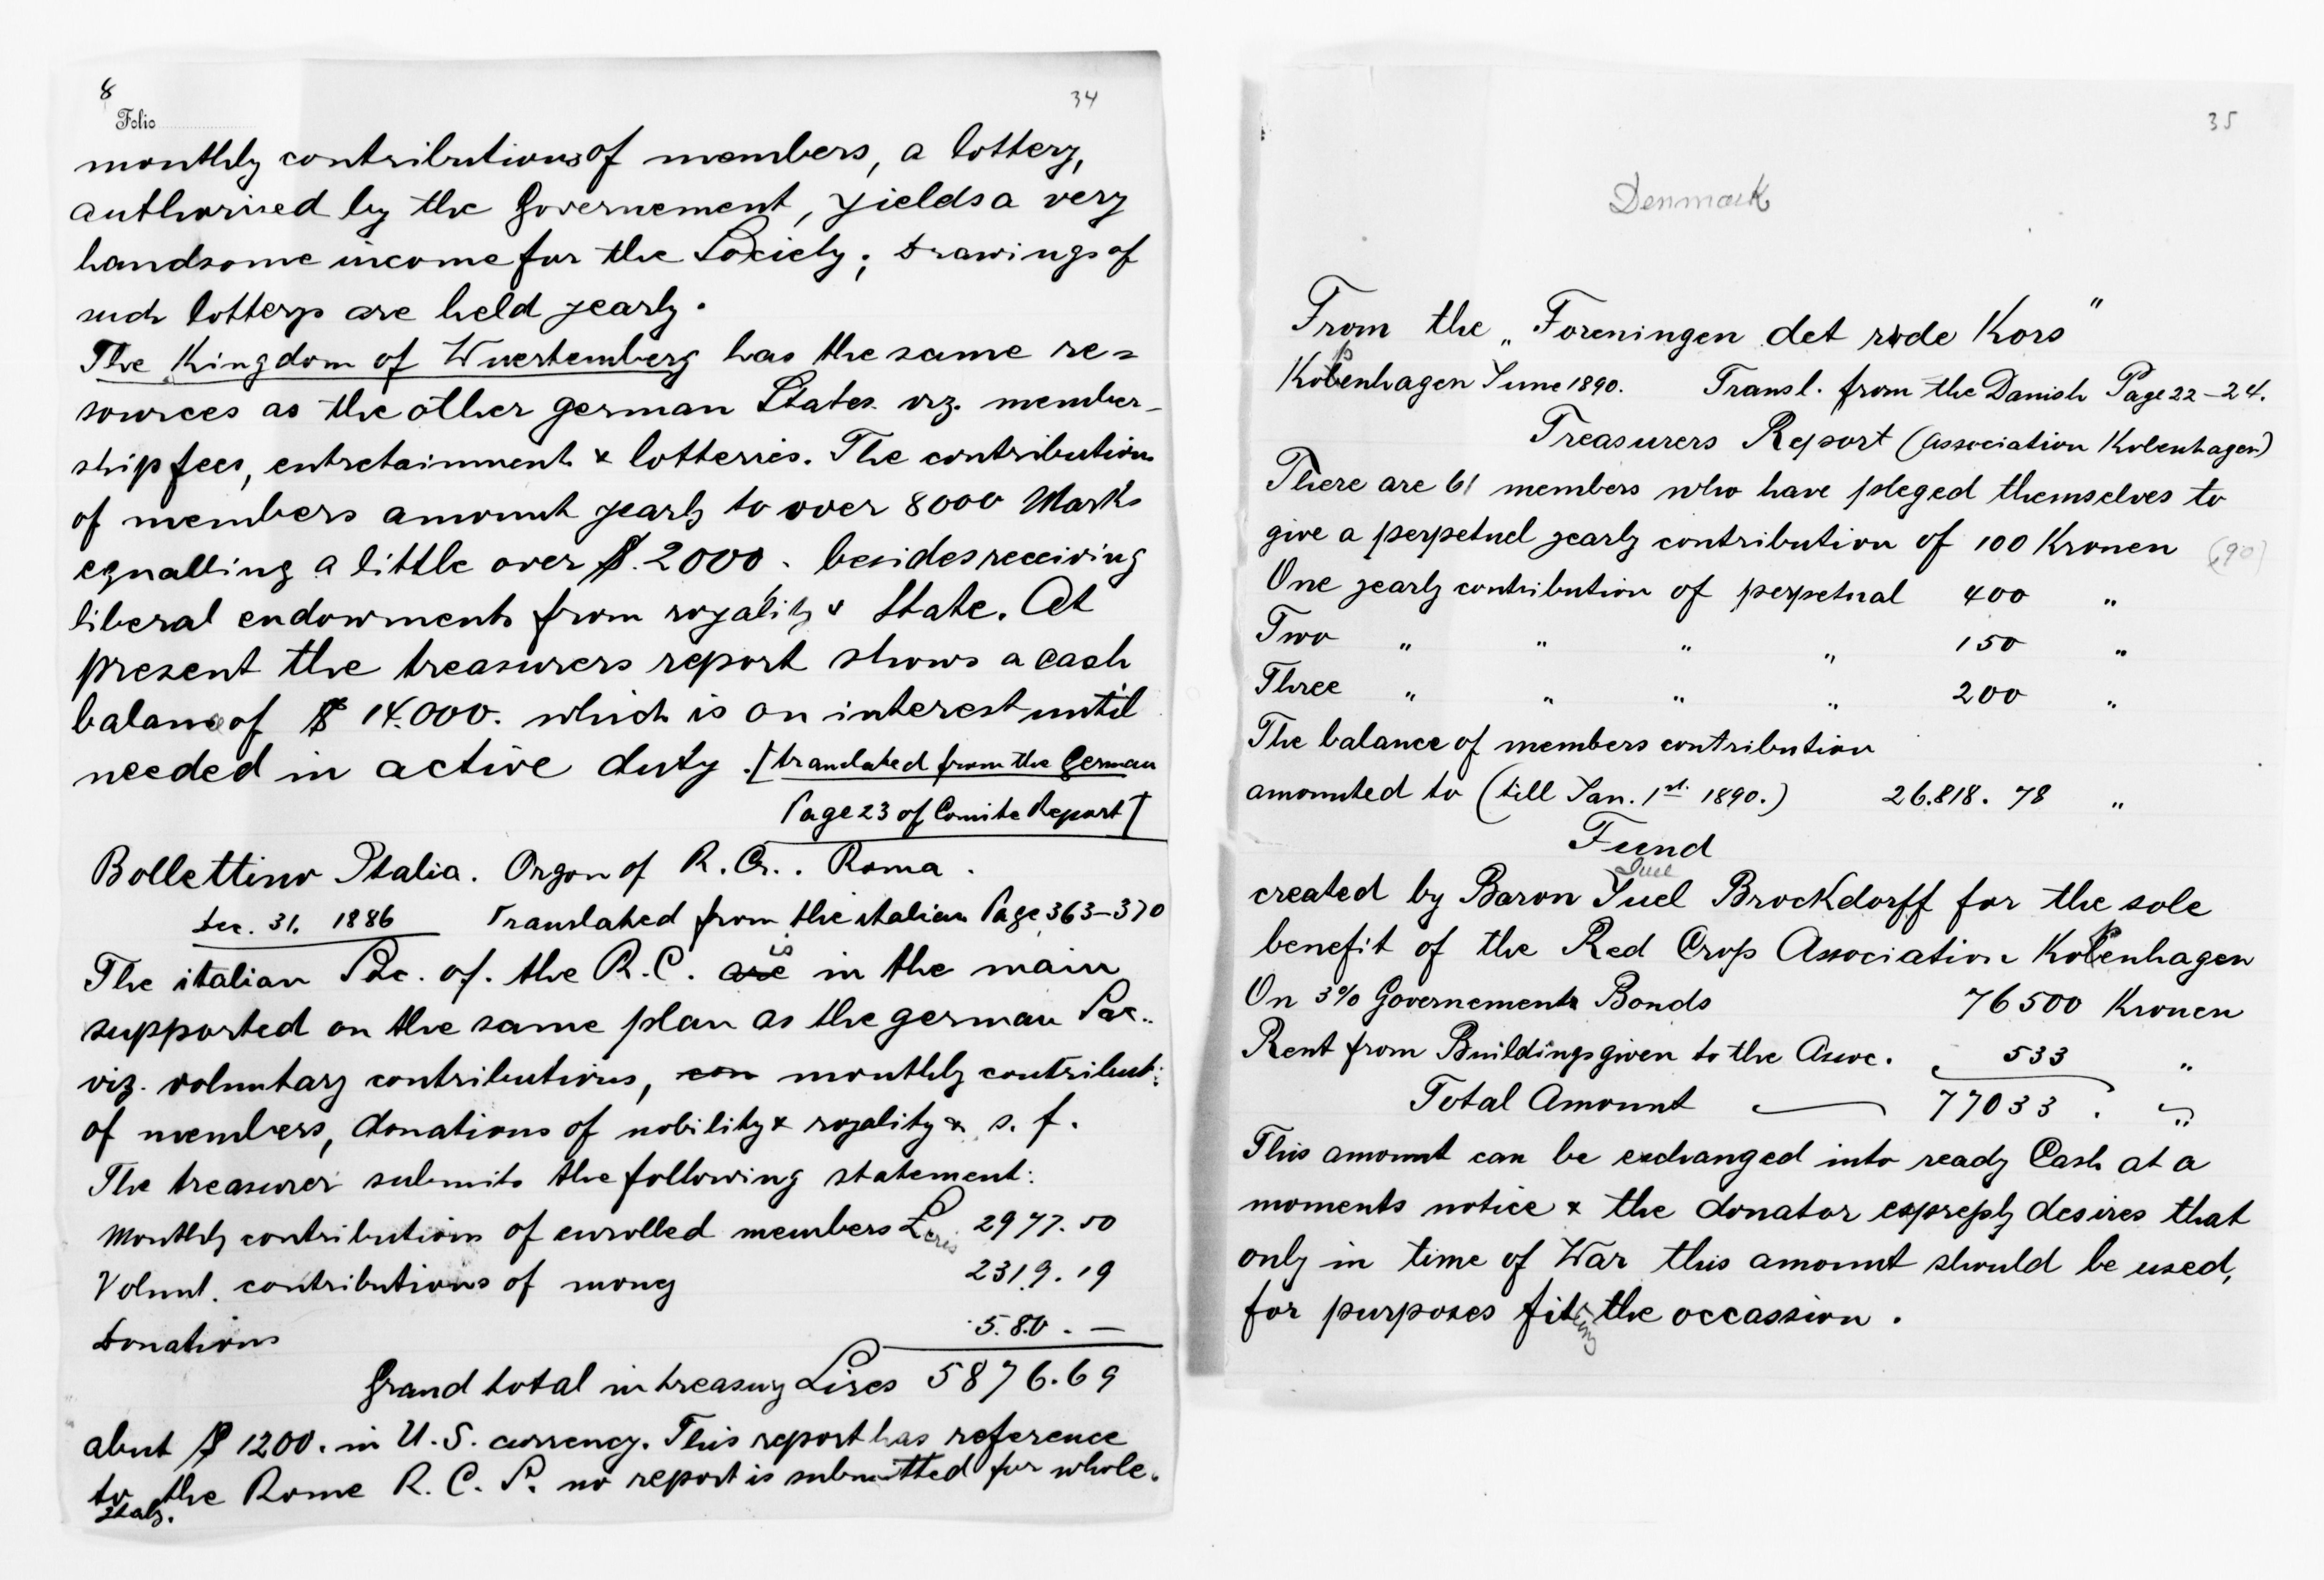 8
34
Folio
monthly contributions of members, a lottery,
authorised by the Governement, yields a very
handsome income for the Society; drawings of
such lotterys are held yearly.
The Kingdom of Wuertemberg has the same re=
sources as the other german States viz. member-
ship fees, entretainment & lotteries. The contributions
of members amount yearly to over 8000 Marks
equalling a little over $ 2000. besides receiving
liberal endowments from royality & State. At
present the treasurers report shows a cash
balance of $ 14.000. which is on interest until
needed in active duty. [translated from the German
Page 23 of Comite Report]
Bollettino Italia. Organ of R. Cr.. Roma.
Dec. 31. 1886 Translated from the italian Page 363-370
The italian Soc. of. the R.C. are is in the main
supported on the same plan as the german Soc..
viz. voluntary contributions, con monthly contribut:
of members, donations of nobility & royality & s. f.
The treasurer submits the following statement:
Monthly contributions of enrolled members Lires 2977.50
Volunt. contributions of mony 2319.19
Donations 580.—
Grand total in treasury Lires 5876.69
abut $ 1200. in U.S. currency. This report has reference
to the Rome R. C. S. no report is submitted for whole.
Italy.
35
Denmark
From the „Foreningen det röde Kors"
Kobenhagen June 1890. Transl. from the Danish Page 22-24.
Treasurers Report (Association Kobenhagen)
There are 61 members who have pleged themselves to
give a perpetuel yearly contribution of 100 Kronen (90)
One yearly contribution of perpetual 400 "
Two " " " " 150 "
Three " " " " 200 "
The balance of members contribution
amounted to (till Jan. 1st. 1890.) 26.818. 78 "
Fund
Juel
created by Baron Juel Brockdorff for the sole
benefit of the Red Cross Association Kobenhagen
On 3% Governements Bonds 76500 Kronen
Rent from Buildings given to the Assoc. 533 "
Total Amount 77033. "
This amount can be exchanged into ready Cash at a
moments notice & the donator expressly desires that
only in time of War this amount should be used,
for purposes fitting the occassion.